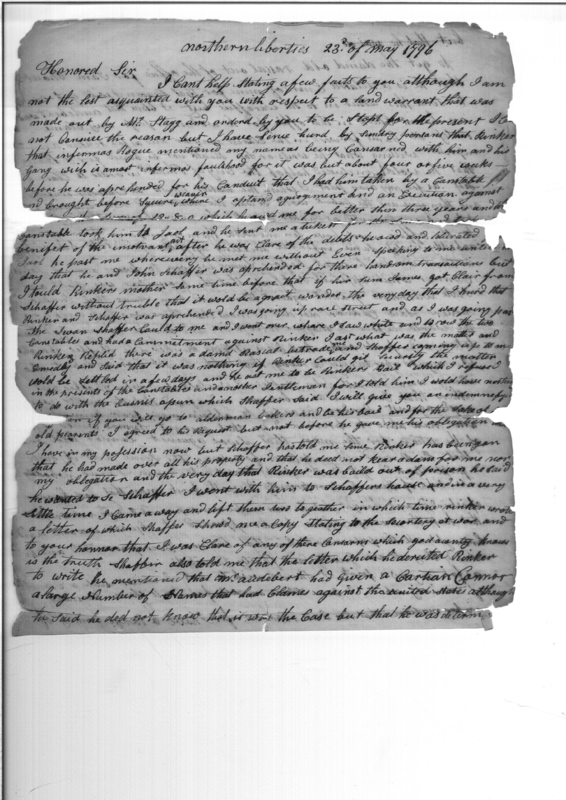 northern liberties 23d of may 1796
Honored Sir
I Cant help Stating a few facts to you although I am
not the lest acquainted with you with respect to a land warrant that was
made out by Mr Stagg and orderd by you to be Stopt for the present I
not Consive the reason but I have Sence hurd by Sendery persans that Rinker
that infermos Rogue mentioned my nam as being Consarned with him and his
Gang wich is a most infermos faulshood for it was but about four or five weeks
before he was apprehended for his Conduct that I had him taken by a Constable
and brought before Squire where I obtand gudgment and an Execution against
which he owed me for better then three years and
Constable took him to Jaol and he Sent me a ticket for
benifect of the insolvant after he was Clare of the debts he and liberated
he past me whereever he met me without Even Speeking to me untill
day that he and John Schaffer was aprehended for those land warn transactions but
I tould Rinkers mother Some time before that if hir Son James got Clair from
Schaffer without truble that it would be a great wonder the very day that I hurd that
Rinker and Schaffer was aprehended I was going up race Street and as I was going pas
the Swan Shaffer Could to me and I went over where I Saw white and
Constables and had a Commetment against Rinker I ast what was the mater and
Rinker Replid there was a damd Rascal betrade and Shaffer
Emedley and Said that it was nothing if Rinker Could git Security the matter
would be Settled in a few days and he ast me to be Rinkers Bail which I refused
in the presents of the Constables and another Jentleman for I told him I would have nothing
to do with the busness upon which Shaffer Said I will give you an indemnefy
if you will go to alderman and be his bail and for the Sake of
old parents I agreed to his request but not before he gave me his obligation
I have in my possession now but Schaffer has told me Sinc Rinker has been gon
that he had made over all his property and that he does not kear a damn for me nor
my oblegation and the very day that Rinker was baild out of prison he Said
he wanted to Se Schaffer I went with him to Schaffers house and in a very
little time I Came away and left them two to geather in which time rinker wrote
a letter of which Shaffer Showd me a Copy Stating to the Secretary at war and
to your honnor that I was Clare of any of there Consarns which god awnty knows
is the truth Shaffer also told me that the letter which he derected Rinker
to write he mentioned that Mr audebert had given a Cartian Connor
a large number of names that had Claimes against the united States although
he Said he ded not know that it was the Case but that he was